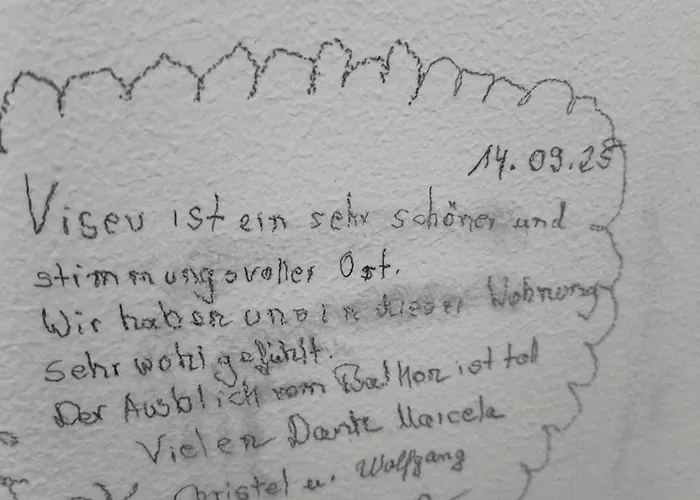 14.09.25
Viseu ist ein sehr schöner und
stimmungsvoller Ort.
Wir haben uns in dieser Wohnung
sehr wohl gefühlt.
Der Ausblick vom Balkon ist toll
Vielen Dank Marcela
Christel u. Wolfgang